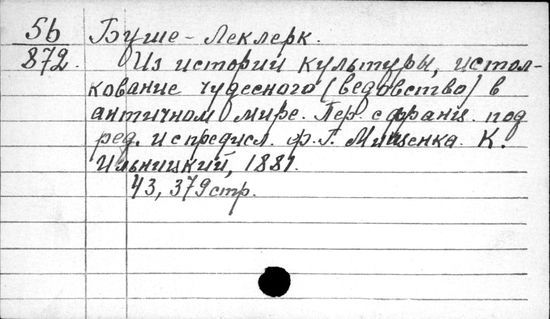 56
872.
Буше-Леклерк.
Из истории культуры, истол-
кование чудесного (ведовство) в
античном мире. Пер. с франц. под
ред. и с предисл. Ф. Г. Мищенка. К.
Ильницкий, 1881.
43, 379 стр.